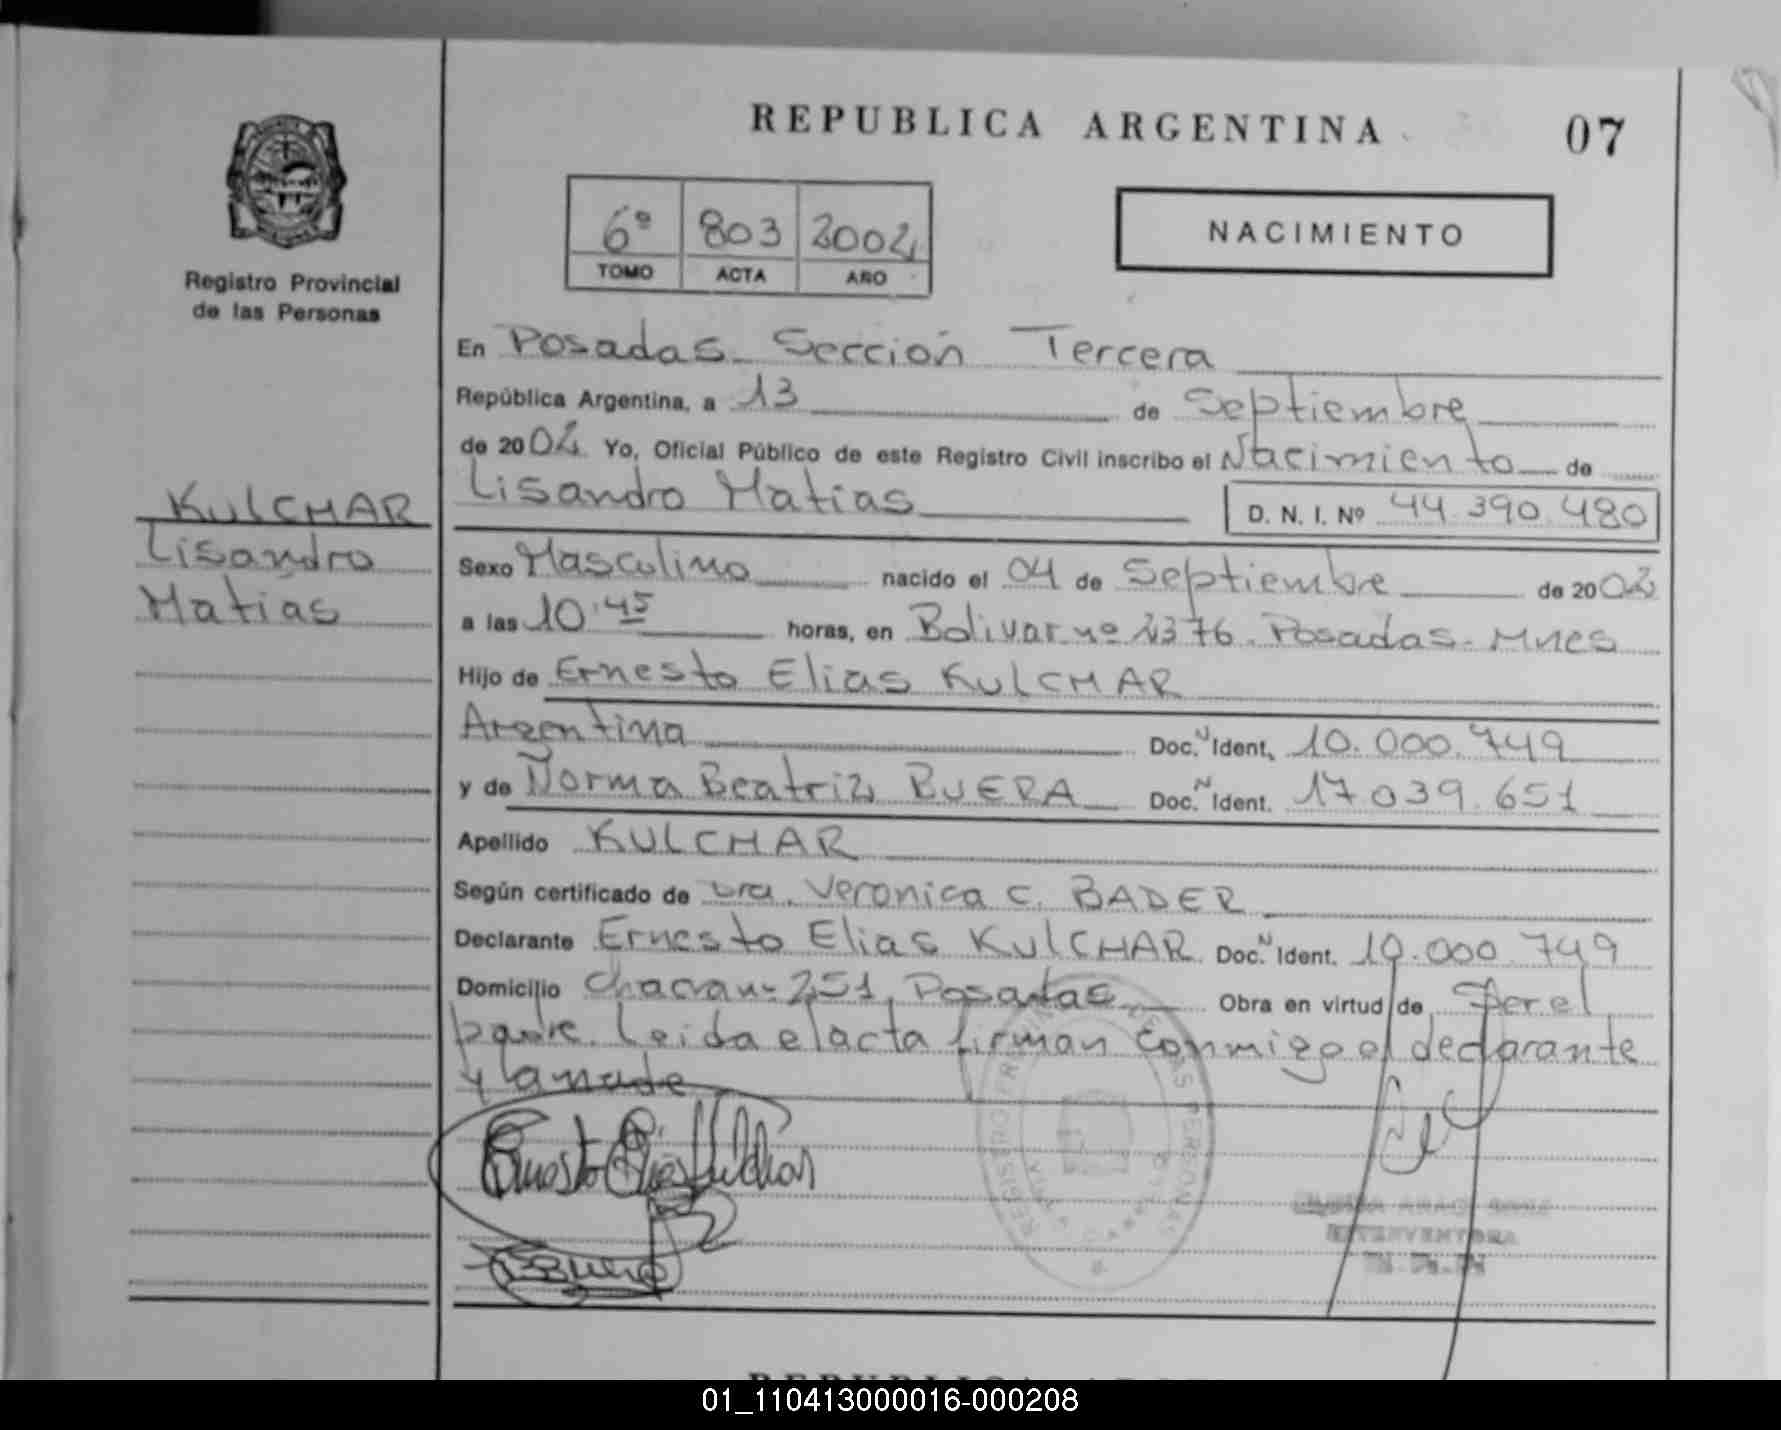 REPUBLICA ARGENTINA
07
6º 803 2002
TOMO ACTA AÑO
NACIMIENTO
Registro Provincial
de las Personas
En Posadas Sección Tercera
República Argentina, a 13 de Septiembre
de 2002 Yo, Oficial Público de este Registro Civil inscribo el Nacimiento de
Lisandro Matias D. N. I. Nº 44.390.480
KULCHAR
Lisandro
Matias
Sexo Masculino nacido el 04 de Septiembre de 2002
a las 10:45 horas, en Bolivar nº 1376. Posadas- Mnes
Hijo de Ernesto Elias KULCHAR
Argentina Doc. N Ident. 10.000.749
y de Norma Beatriz BUERA Doc. N Ident. 17.039.651
Apellido KULCHAR
Según certificado de Dra. Veronica C. BADER
Declarante Ernesto Elias KULCHAR Doc. N Ident. 10.000.749
Domicilio Chacra nº 251, Posadas Obra en virtud de Ser el
padre. Leida el acta firman conmigo el declarante
y la madre
REGISTRO PROVINCIAL DE LAS PERSONAS
INTERVENTORA
01_110413000016-000208